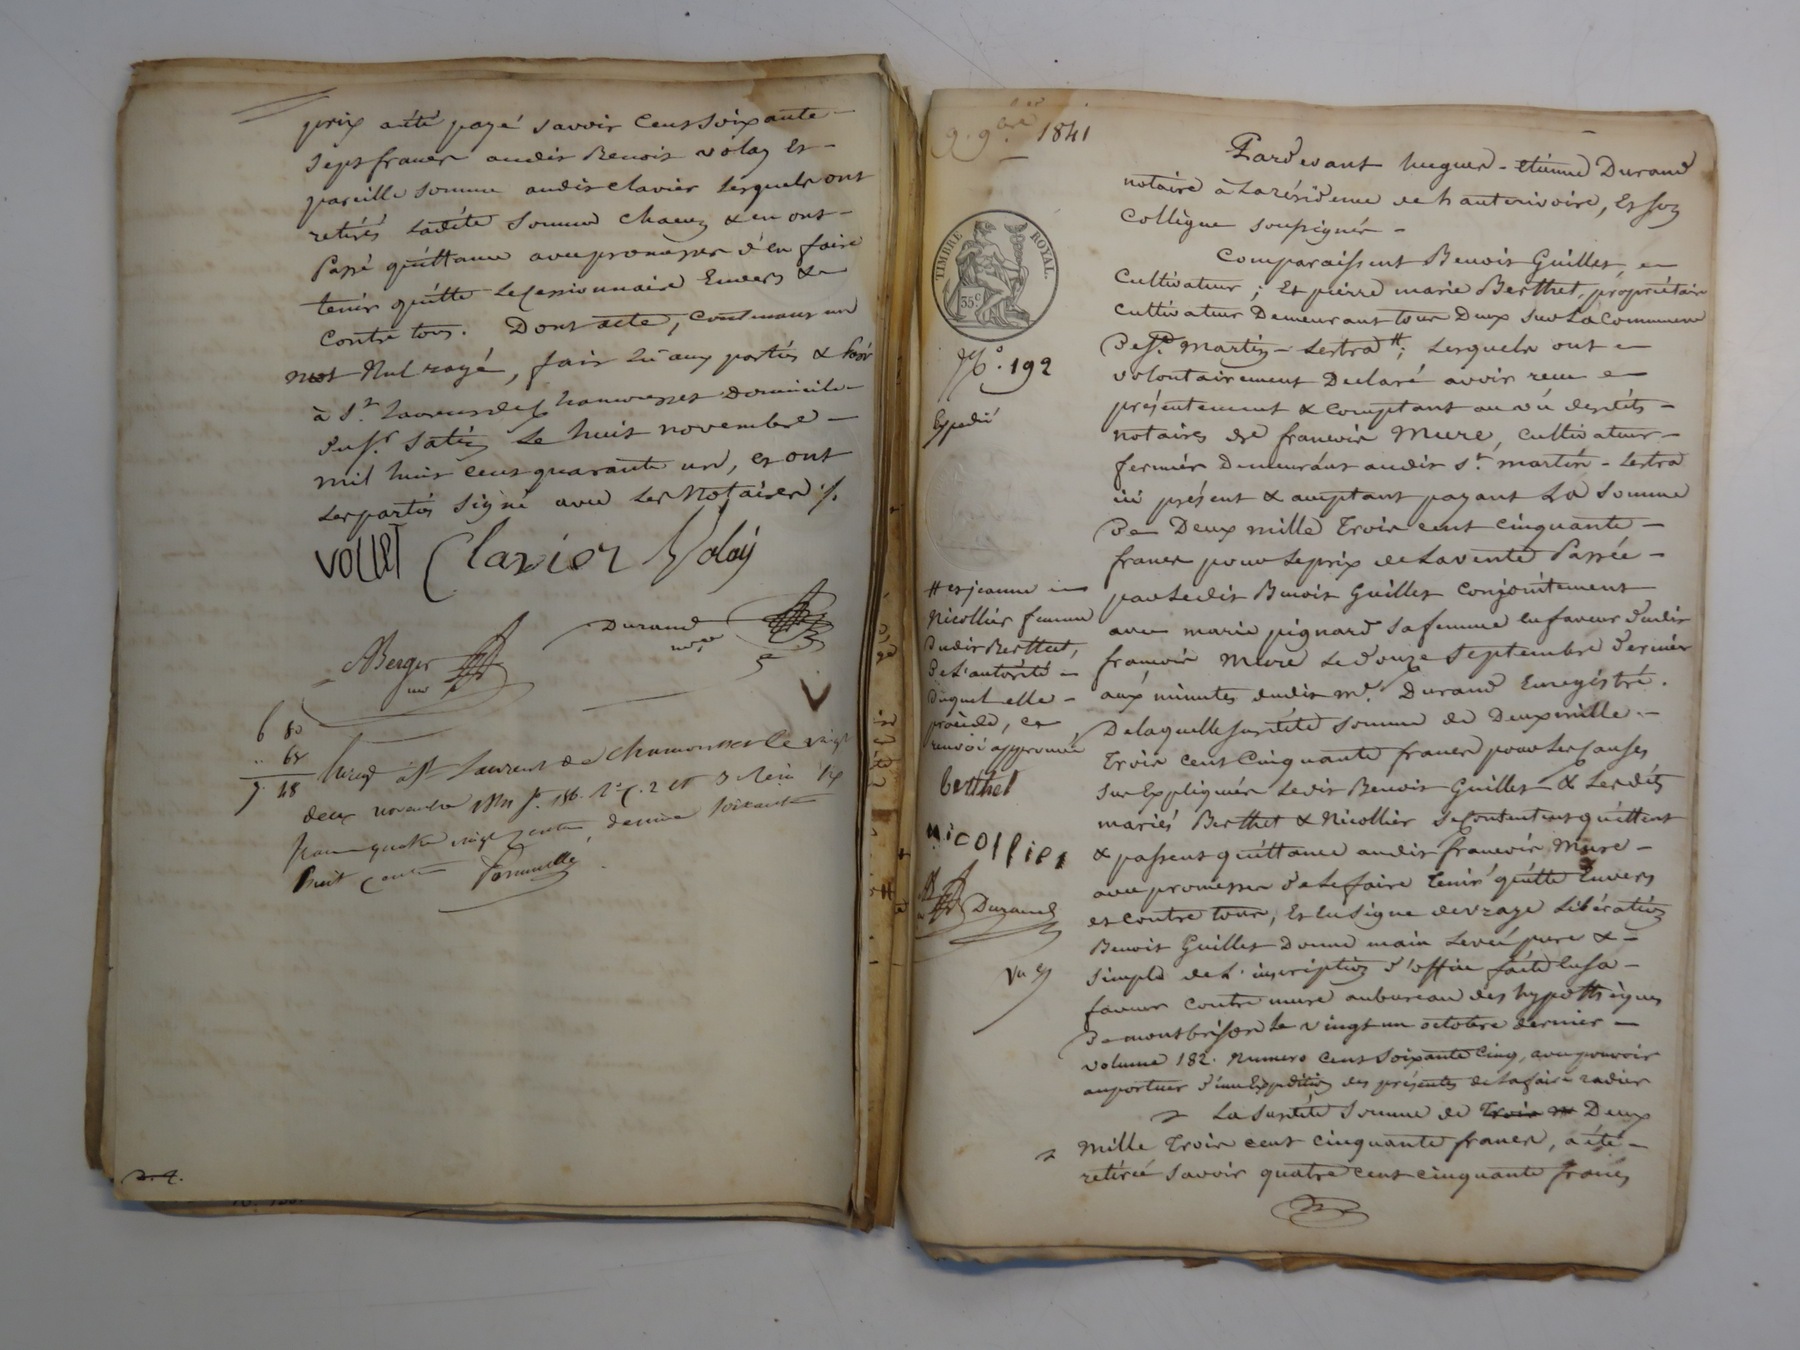 prix a été payé savoir cent soixante
sept francs audit Benoit Volay Et
pareille somme audit Clavier lesquels ont
retirés ladite somme chacun & en ont
Passé quittance avec promesses d'en faire
tenir quitte le Cessionnaire Envers &
Contre tous. Dont acte, contenant un
mot Nul rayé, fait lu aux parties & Passé
à St Laurent de Chamousset Domicile
du Sr. le huit novembre
mil huit cent quarante un, et ont
les parties signé avec les Notaires ./.
VOLLET Clavier Volay
ABerger
no
Durand
nore
6 80
.. 68
7. 48
Enreg. à St Laurent de Chamousset le vingt
deux novembre 1841 f°. 186. R° C. 2 et 3 Reçu six
francs quatre vingt centimes, décime soixante
huit centimes
9. 9bre. 1841
TIMBRE ROYAL.
35c
No. 192
Expedié
# et jeanne
Nicollier femme
Dudit Berthet,
De L'autorité
Duquel elle
procède, et
renvoi approuvé
berthet
nicollier
AB
no
Durand
Pardevant hugues-etienne Durand
notaire à La résidence de hauterivoire, Et son
Collègue soussignés
Comparaissent Benoit Guillet
Cultivateur; Et pierre marie Berthet, propriétaire
cultivateur Demeurant tous Deux sur La Commune
De St. Martin-Lestra #; Lesquels ont
volontairement Declaré avoir reçu
présentement & comptant au vu desdits
notaires de francois Mure, cultivateur
fermier Demeurant audit St. martin-Lestra
ici présent & acceptant payant La Somme
De Deux mille Trois cent cinquante
francs pour Le prix de La vente Passée
par Ledit Benoit Guillet Conjointement
avec marie pignard sa femme en faveur Dudit
francois Mure Le Douze Septembre Dernier
aux minutes dudit me. Durand Enregistré.
De laquelle susdite somme de Deux mille
Trois cent Cinquante francs pour Les causes
sus Expliquées Ledit Benoit Guillet & Lesdits
mariés Berthet & Nicollier se contentent quittent
& passent quittance audit francois Mure
avec promesses de Le faire Tenir quitte Envers
et contre tous, Et en signe de vraye Libération
Benoit Guillet Donne main Levée pure &
simple de L'inscription d'office faite en sa
faveur contre mure au bureau des hypothèques
De montbrison le vingt un octobre dernier
volume 182. Numero cent soixante cinq, avec pouvoir
au porteur d'une Expédition des présentes de La faire radier
La susdite Somme de Trois m Deux
Mille Trois cent cinquante francs, a été
retirée savoir quatre cent cinquante francs